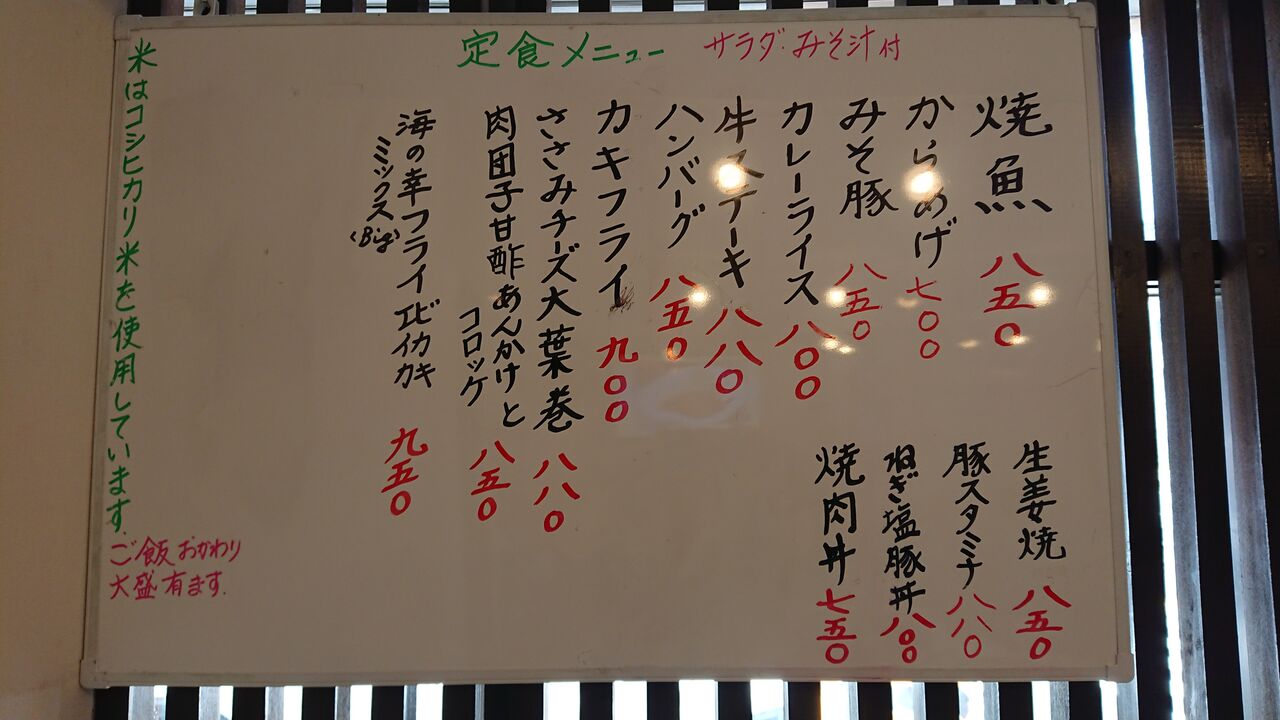 定食メニュー サラダ・みそ汁付
焼魚 八五〇
からあげ 七〇〇
みそ豚 八五〇
カレーライス 八〇〇
牛ステーキ 八八〇
ハンバーグ 八五〇
カキフライ 九〇〇
ささみチーズ大葉巻 八八〇
肉団子甘酢あんかけと
コロッケ 八五〇
海の幸フライ エビ イカ カキ 九五〇
ミックス
(Big)
生姜焼 八五〇
豚スタミナ 八八〇
ねぎ塩豚丼 八〇〇
焼肉丼 七五〇
米はコシヒカリ米を使用しています.
ご飯おかわり
大盛有ます.